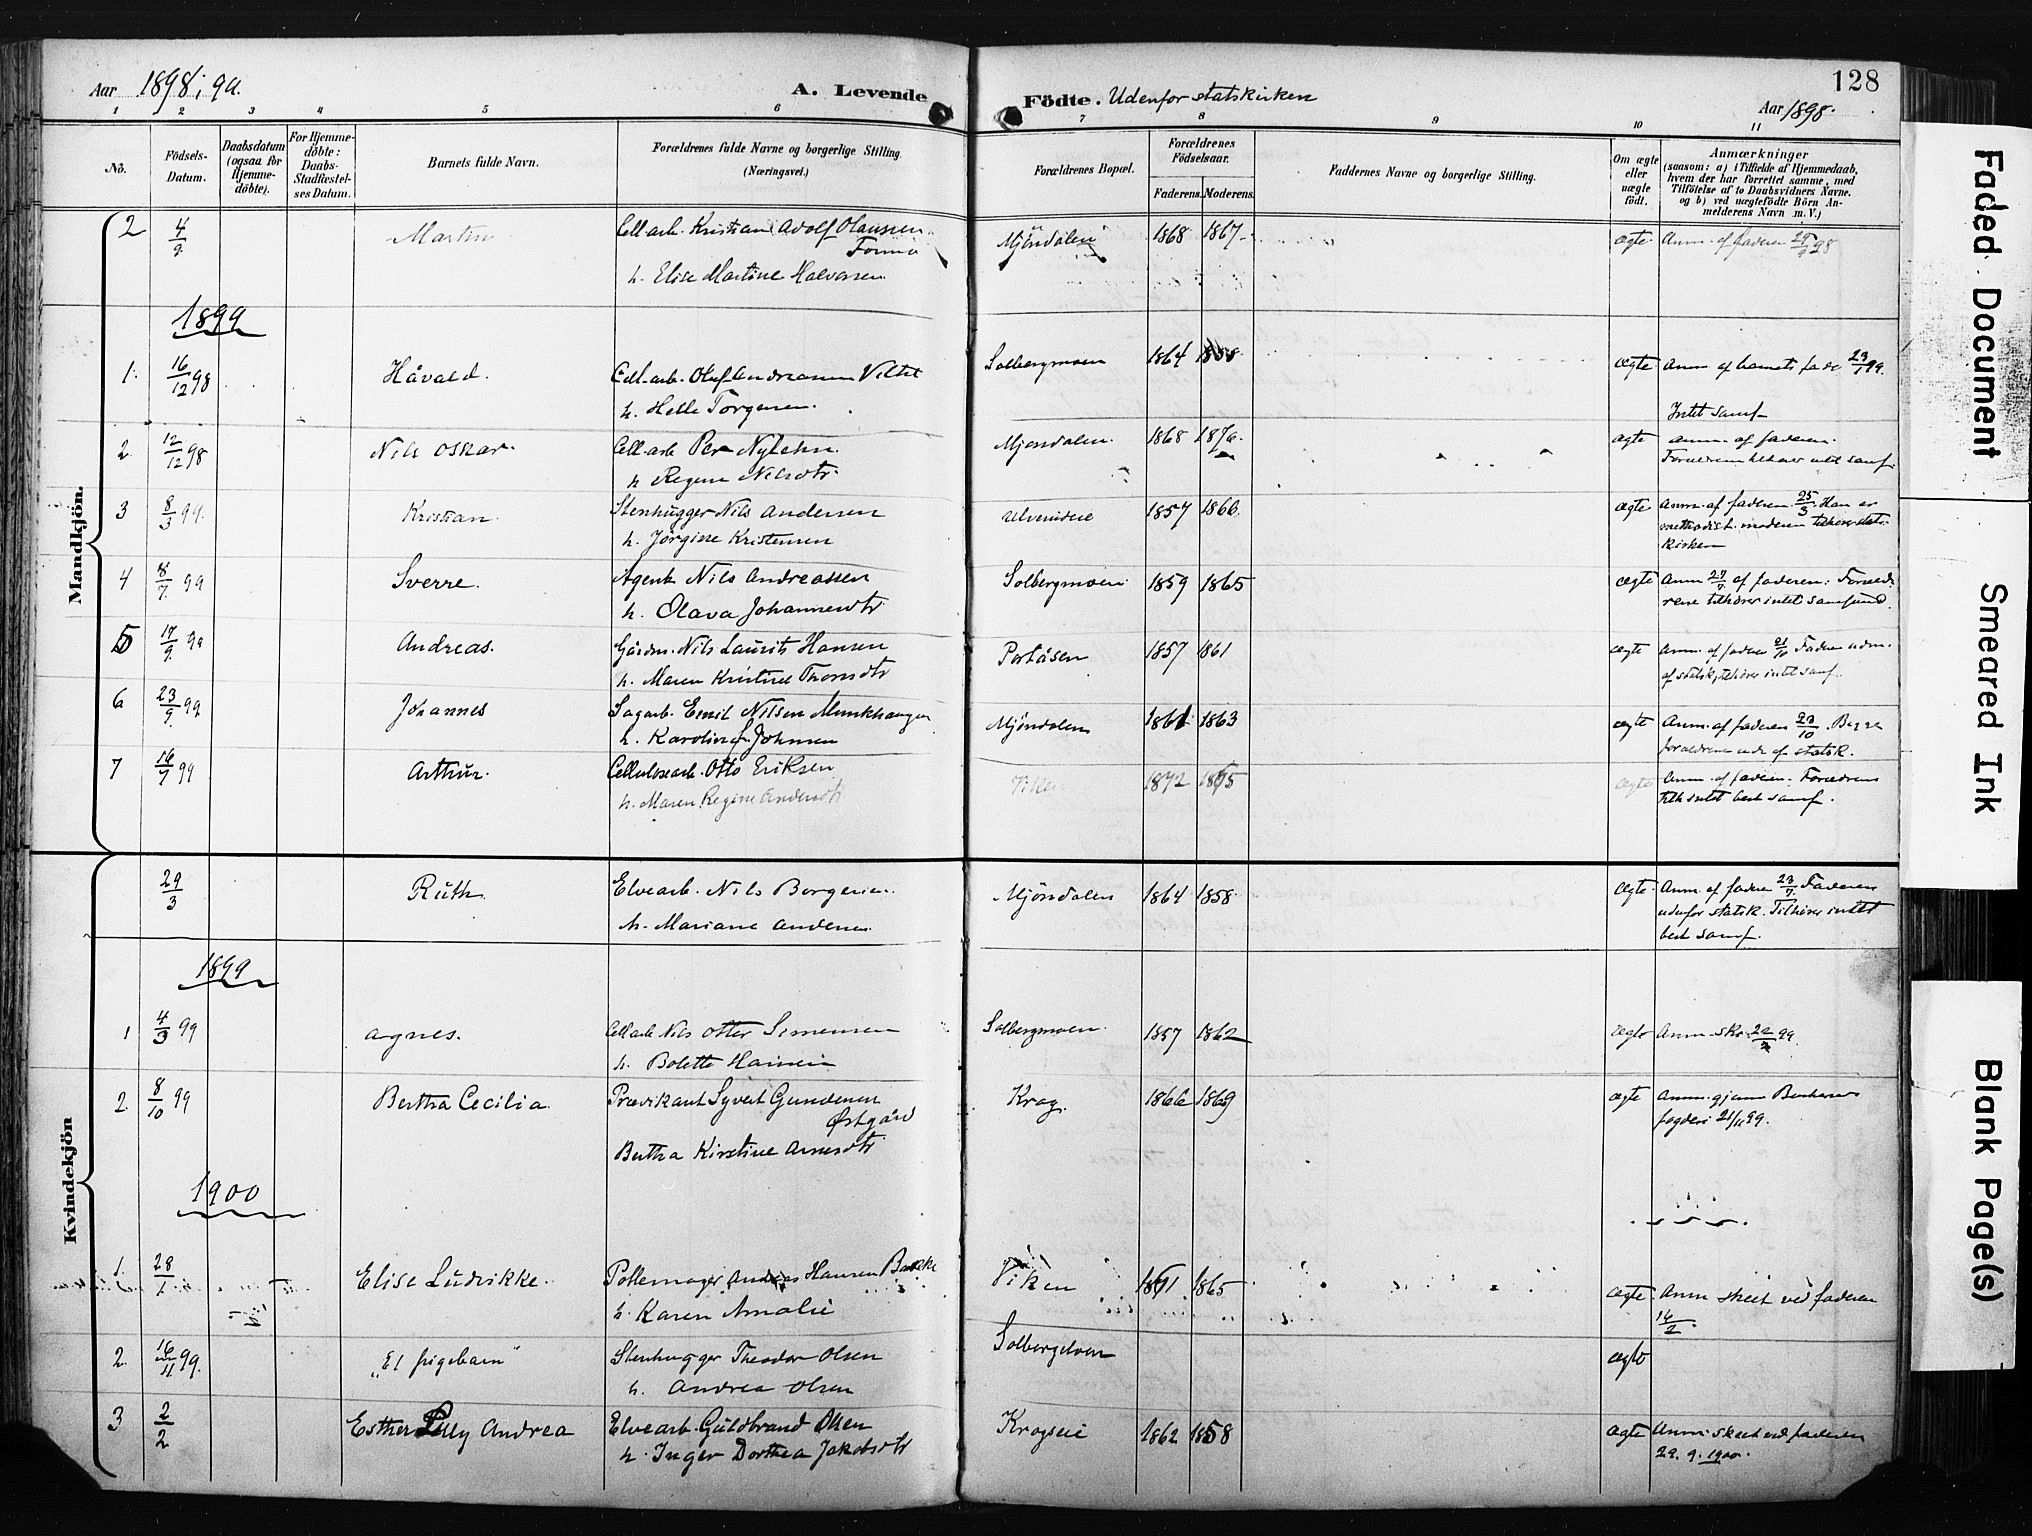 Aar 1898; 99.
A. Levende
Födte. Udenfor statskirken
Aar 1898.
128
1 2 3 4 5 6 7 8 9 10 11
No.
Födsels-Datum.
Daabsdatum (ogsaa for Hjemme-döbte).
For Hjemme-döbte: Daabs-Stadfæstel-ses Datum.
Barnets fulde Navn.
Forældrenes fulde Navne og borgerlige Stilling. (Næringsvei.)
Forældrenes Bopæl.
Forældrenes Födselsaar.
Faderens. Moderens.
Faddernes Navne og borgerlige Stilling.
Om ægte eller uægte födt.
Anmærkninger
(saasom: a) i Tilfælde af Hjemmedaab, hvem der har forrettet samme, med Tilföielse af to Daabsvidners Navne, og b) ved uægtefödte Börn An-melderens Navn m. V.)
Mandkjön.
2 4/9 Martin Cell.arb. Kristian Adolf Olaussen Mjöndalen 1868 1867 ægte Anm. af faderen 98
h. Elise Martine Halvorsen
1899
1. 16/12 98 Håvald. Cell-arb. Oluf Andreassen Solbergmoen 1864 ægte Anm. af barnets fader 23/1 99.
h. Helle Torgersen. Intet samf.
2. 12/12 98 Nils Oskar. Cell-arb Per Mjöndalen. 1868 ægte anm. af faderen.
h Regine Nilsdtr. Forældrene tilhører intet samf.
3 8/3 99. Kristian. Stenhugger Nils Andersen Ulverudeie 1857 1866. ægte Anm. af faderen 25/3. Han er
h. Jørgine Kristensen methodist. moderen tilhører stats-
kirken
4 8/7. 99 Sverre. Agent Nils Andreassen Solbergmoen. 1859 1865 ægte Anm 27/7 af faderen: Foræld-
h. Olava Johannesdtr rene tilhører intet samfund.
5 17/9. 99 Andreas. Gårdm. Nils Laurits Hansen Portåsen 1857 1861 ægte Anm. af fader 21/10 Faderen udm.
h. Maren Kristine Thorsdtr af statsk, tilhører intet samf.
6 23/9. 99 Johannes Sagarb. Emil Nilsen Munkhaugen Mjöndalen 1861 1863 ægte Anm. af faderen 23/10. Begge
h. Karoline Johnsen forældrene ude af statsk.
7 16/7 99 Arthur. Cellulosearb. Otto Eriksen Viken 1872 1875 ægte Anm. af faderen. Forældrene
h. Maren Regine Andersdtr tilh intet best samf.
Kvindekjön
29/3 Ruth. Elvearb. Nils Borgersen. Mjöndalen 1864 1858. ægte Anm. af fader 23/7. Faderen
h. Mariane Andersen. udenfor statsk. Tilhører intet
best samf.
1899
1 4/3 99 Agnes. Cellarb Nils Otter Simensen Solbergmoen. 1857 1862 ægte Anm. 99.
h. Bolette Hansen
2 8/10 99 Bertha Cecilia. Prædikant Syvert Gundersen Krog. 1866 1869 ægte Anm. gjennem
Østgård fogderi 21/11 99.
Bertha Kirstine Arnesdtr
1900
1. 28/1 Elise Ludvikke. Pottemager Andreas Hansen Bakke Viken 1865 ægte. Anm skeet ved faderen
h. Karen Amalie 14/2.
2. 16/11 99. „Et pigebarn" Stenhugger Theodor Olsen Solbergelven ægte
h. Andrea Olsen
3 2/2 Esther Lilly Andrea Elvearb. Guldbrand Olsen Krogseie 1862 1858 ægte Anm. skeet ved faderen
h. Inger Dorthea Jakobsdtr 22. 9. 1900.
Faded Document
Smeared Ink
Blank Page(s)